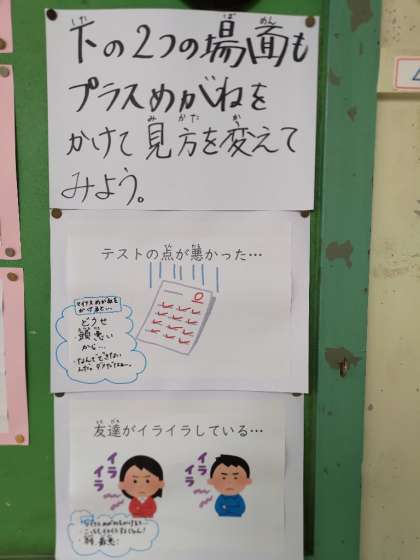 下の2つの場面も
プラスめがねを
かけて見方を変えて
みよう。
テストの点が悪かった…
マイナスめがねを
かけると…
どうせ
頭悪い
から…
友達がイライラしている…
イライラ
イライラ